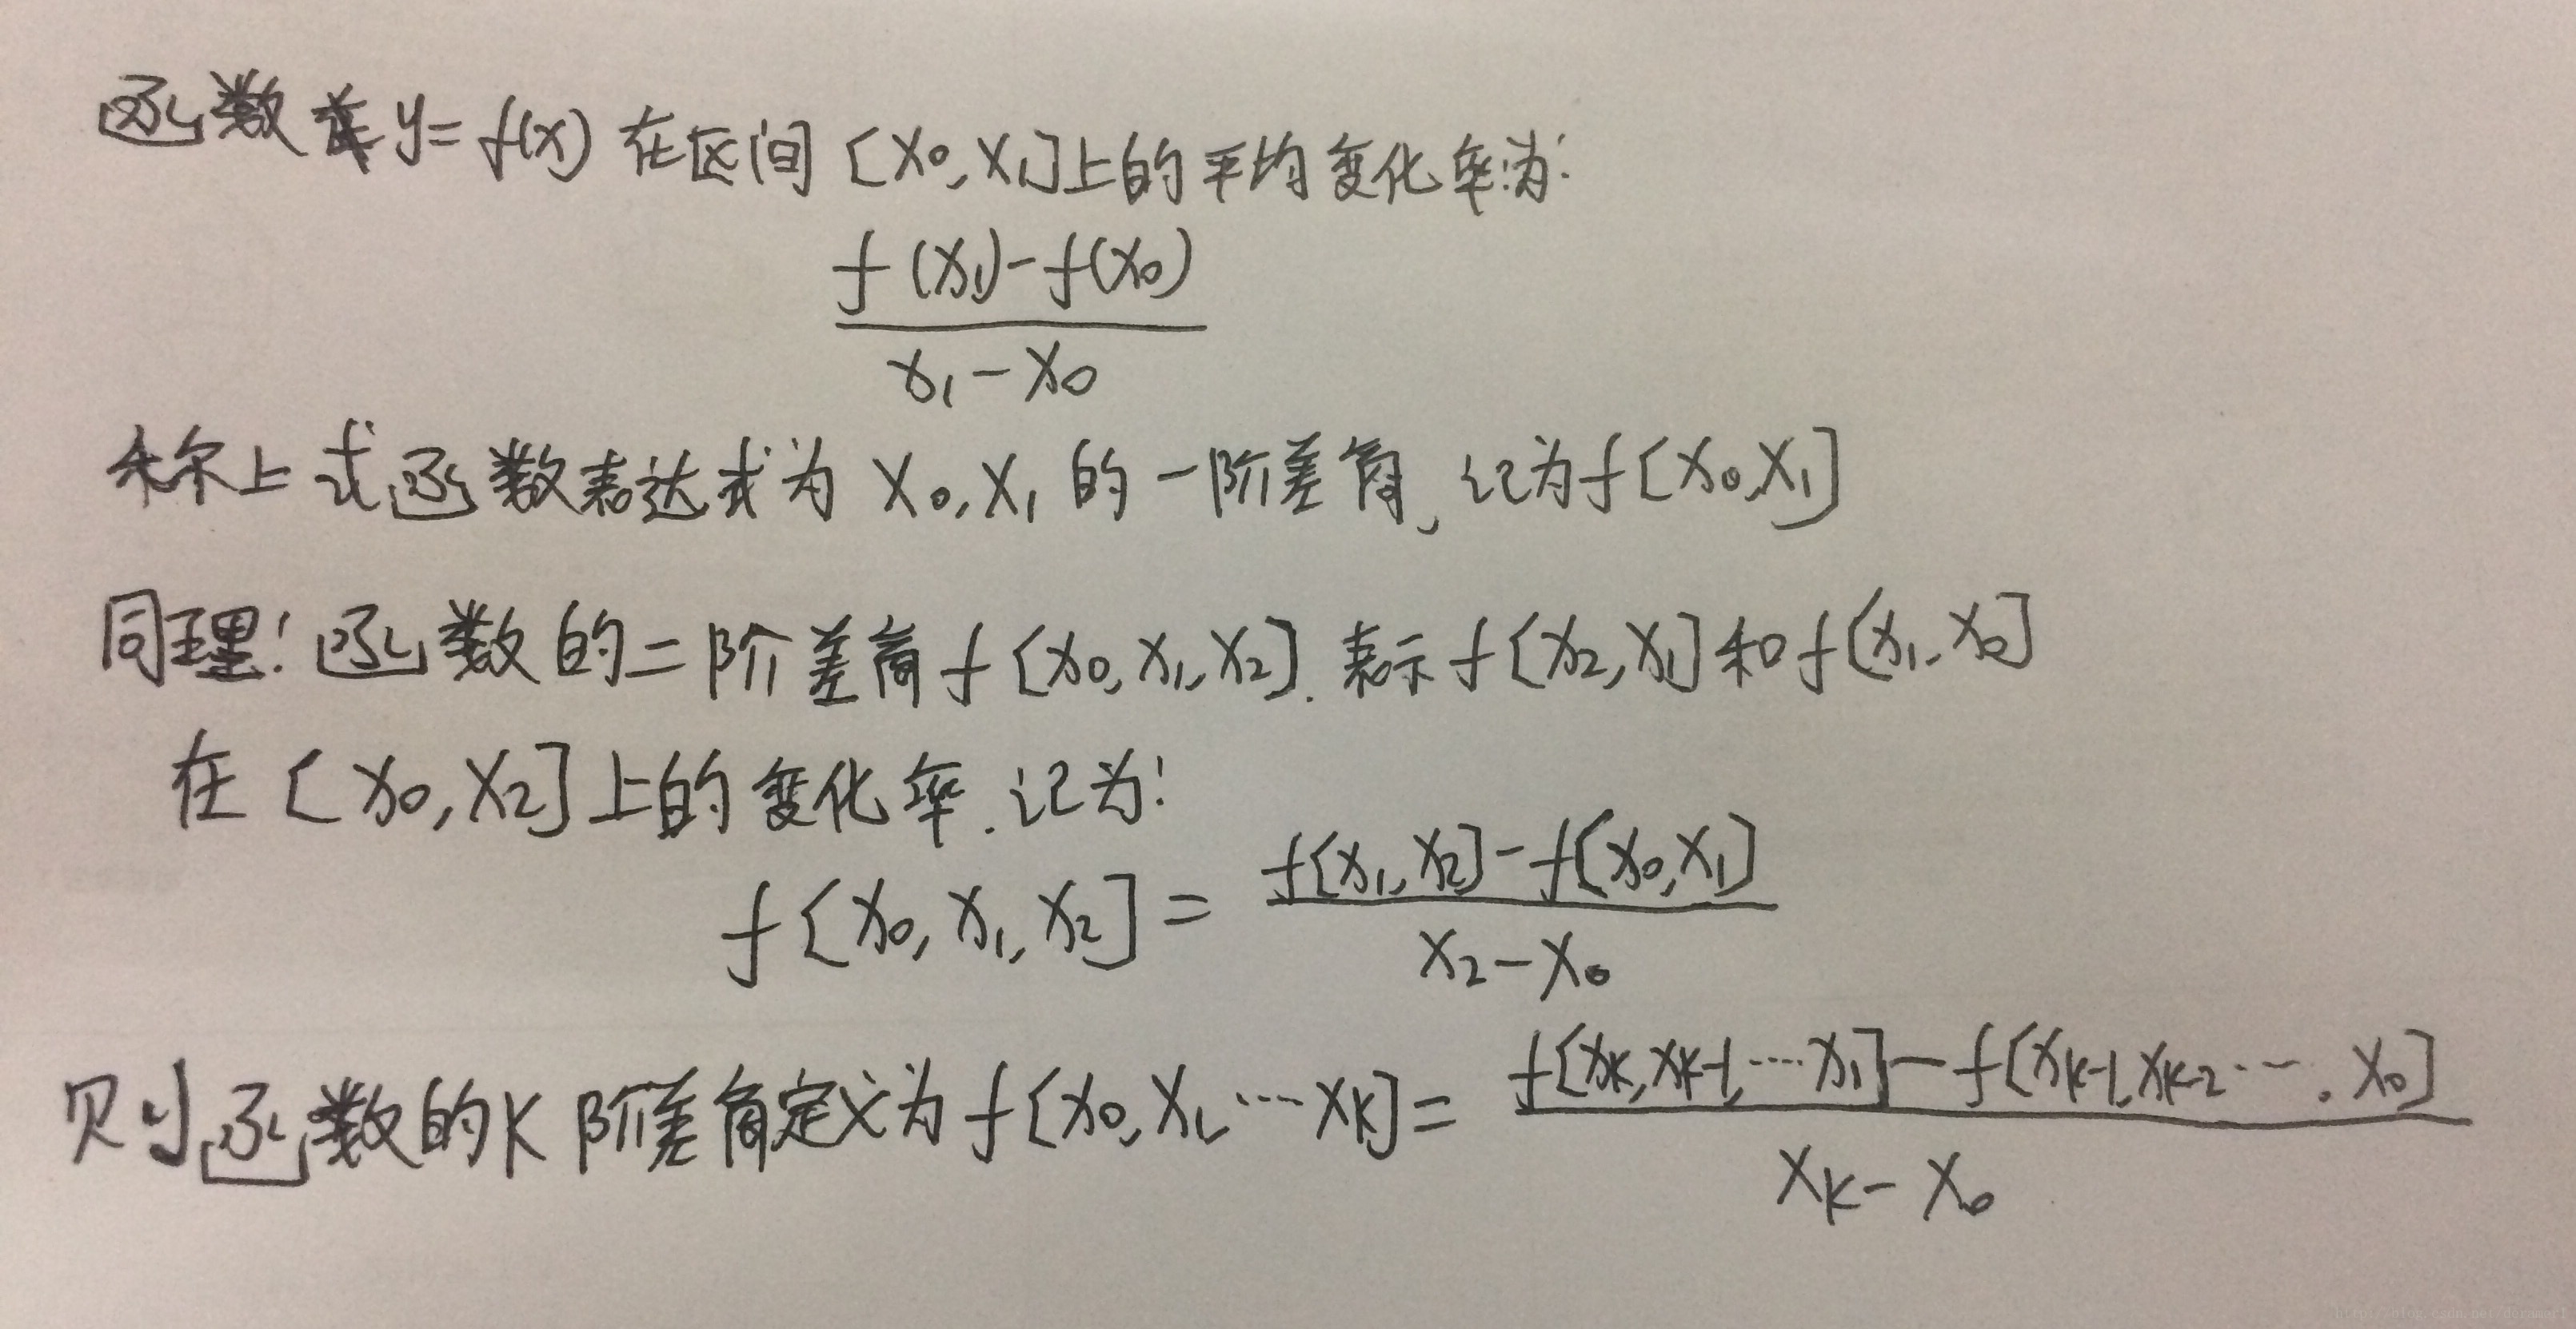 函数 y=f(x) 在区间 [x₀,x₁]上的平均变化率为:
f(x₁)-f(x₀)
x₁-x₀
称上式函数表达式为 x₀,x₁ 的一阶差商,记为f[x₀,x₁]
同理:函数的二阶差商f[x₀,x₁,x₂].表示f[x₂,x₁]和f[x₁,x₀]
在[x₀,x₂]上的变化率.记为:
f[x₀,x₁,x₂]= f[x₁,x₂]-f[x₀,x₁]
x₂-x₀
则函数的K阶差商定义为f[x₀,x₁,…xₖ]= f[xₖ,xₖ₋₁,…x₁]-f[xₖ₋₁,xₖ₋₂…,x₀]
xₖ-x₀